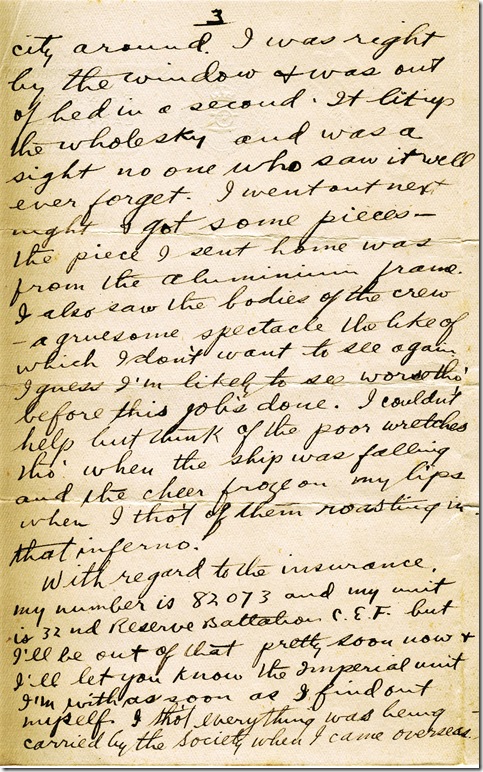 3
city around. I was right
by the window & was out
of bed in a second. It lit up
the whole sky and was a
sight no one who saw it will
ever forget. I went out next
night & got some pieces—
the piece I sent home was
from the aluminium frame.
I also saw the bodies of the crew
- a gruesome spectacle the like of
which I don't want to see again.
I guess I'm likely to see worse tho'
before this job's done. I couldn't
help but think of the poor wretches
tho' when the ship was falling
and the cheer froze on my lips
when I thot of them roasting in
that inferno.
With regard to the insurance,
my number is 82073 and my unit
is 32nd Reserve Battalion C.E.F. but
I'll be out of that pretty soon now &
I'll let you know the Imperial unit
I'm with as soon as I find out
myself. I thot everything was being
carried by the Society when I came overseas.